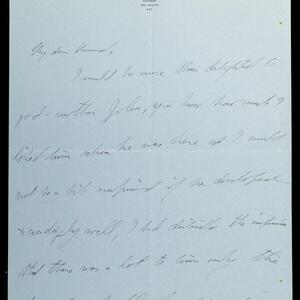 My dear
I would be more than delighted to
god-mother John, you know how much I
liked him when he was here and I would
not be a bit surprised if he developed
exceedingly well, I had definitely the impression
that there was a lot to him under the